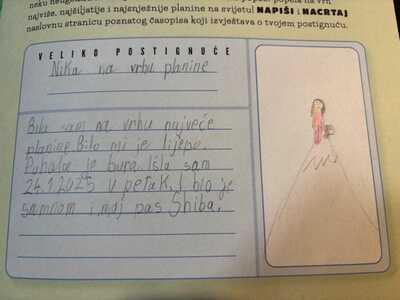 najviše, najšiljatije i najsnježnije planine na svijetu! NAPIŠI i NACRTAJ
naslovnu stranicu poznatog časopisa koji izvještava o tvojem postignuću.
VELIKO POSTIGNUĆE
Nika na vrhu planine
Bila sam na vrhu najveće
planine. Bilo mi je lijepo.
Puhala je bura. Išla sam
24.1.2025 u petak. I bio je
samnom i moj pas Shiba.